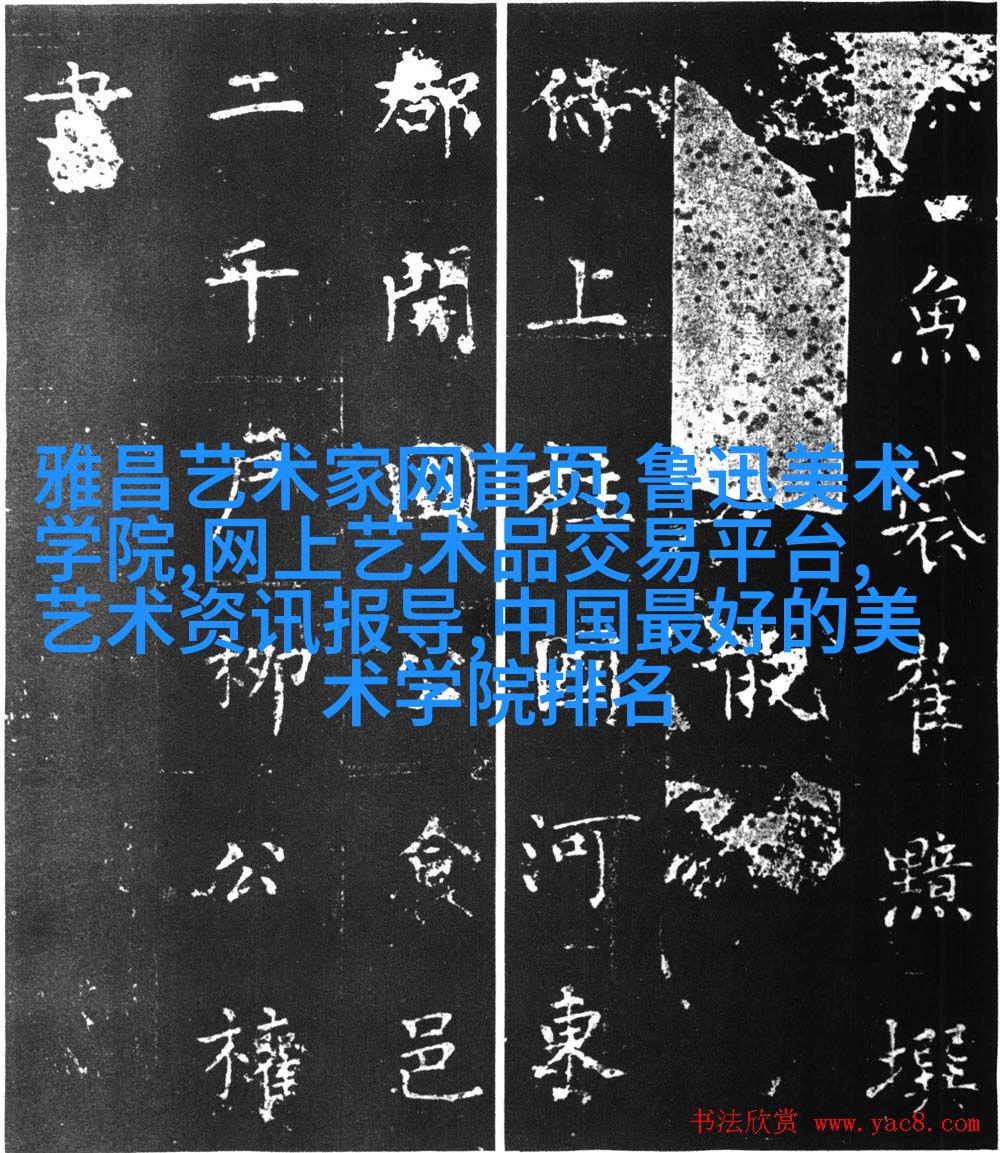 魚袋崔黯撰
侍上柱國河東
都開國公食邑
二千戶柳公權
書
雅昌艺术家网首页,鲁迅美术
学院,网上艺术品交易平台,
艺术资讯报导,中国最好的美
术学院排名
书法欣赏 www.yac8.com